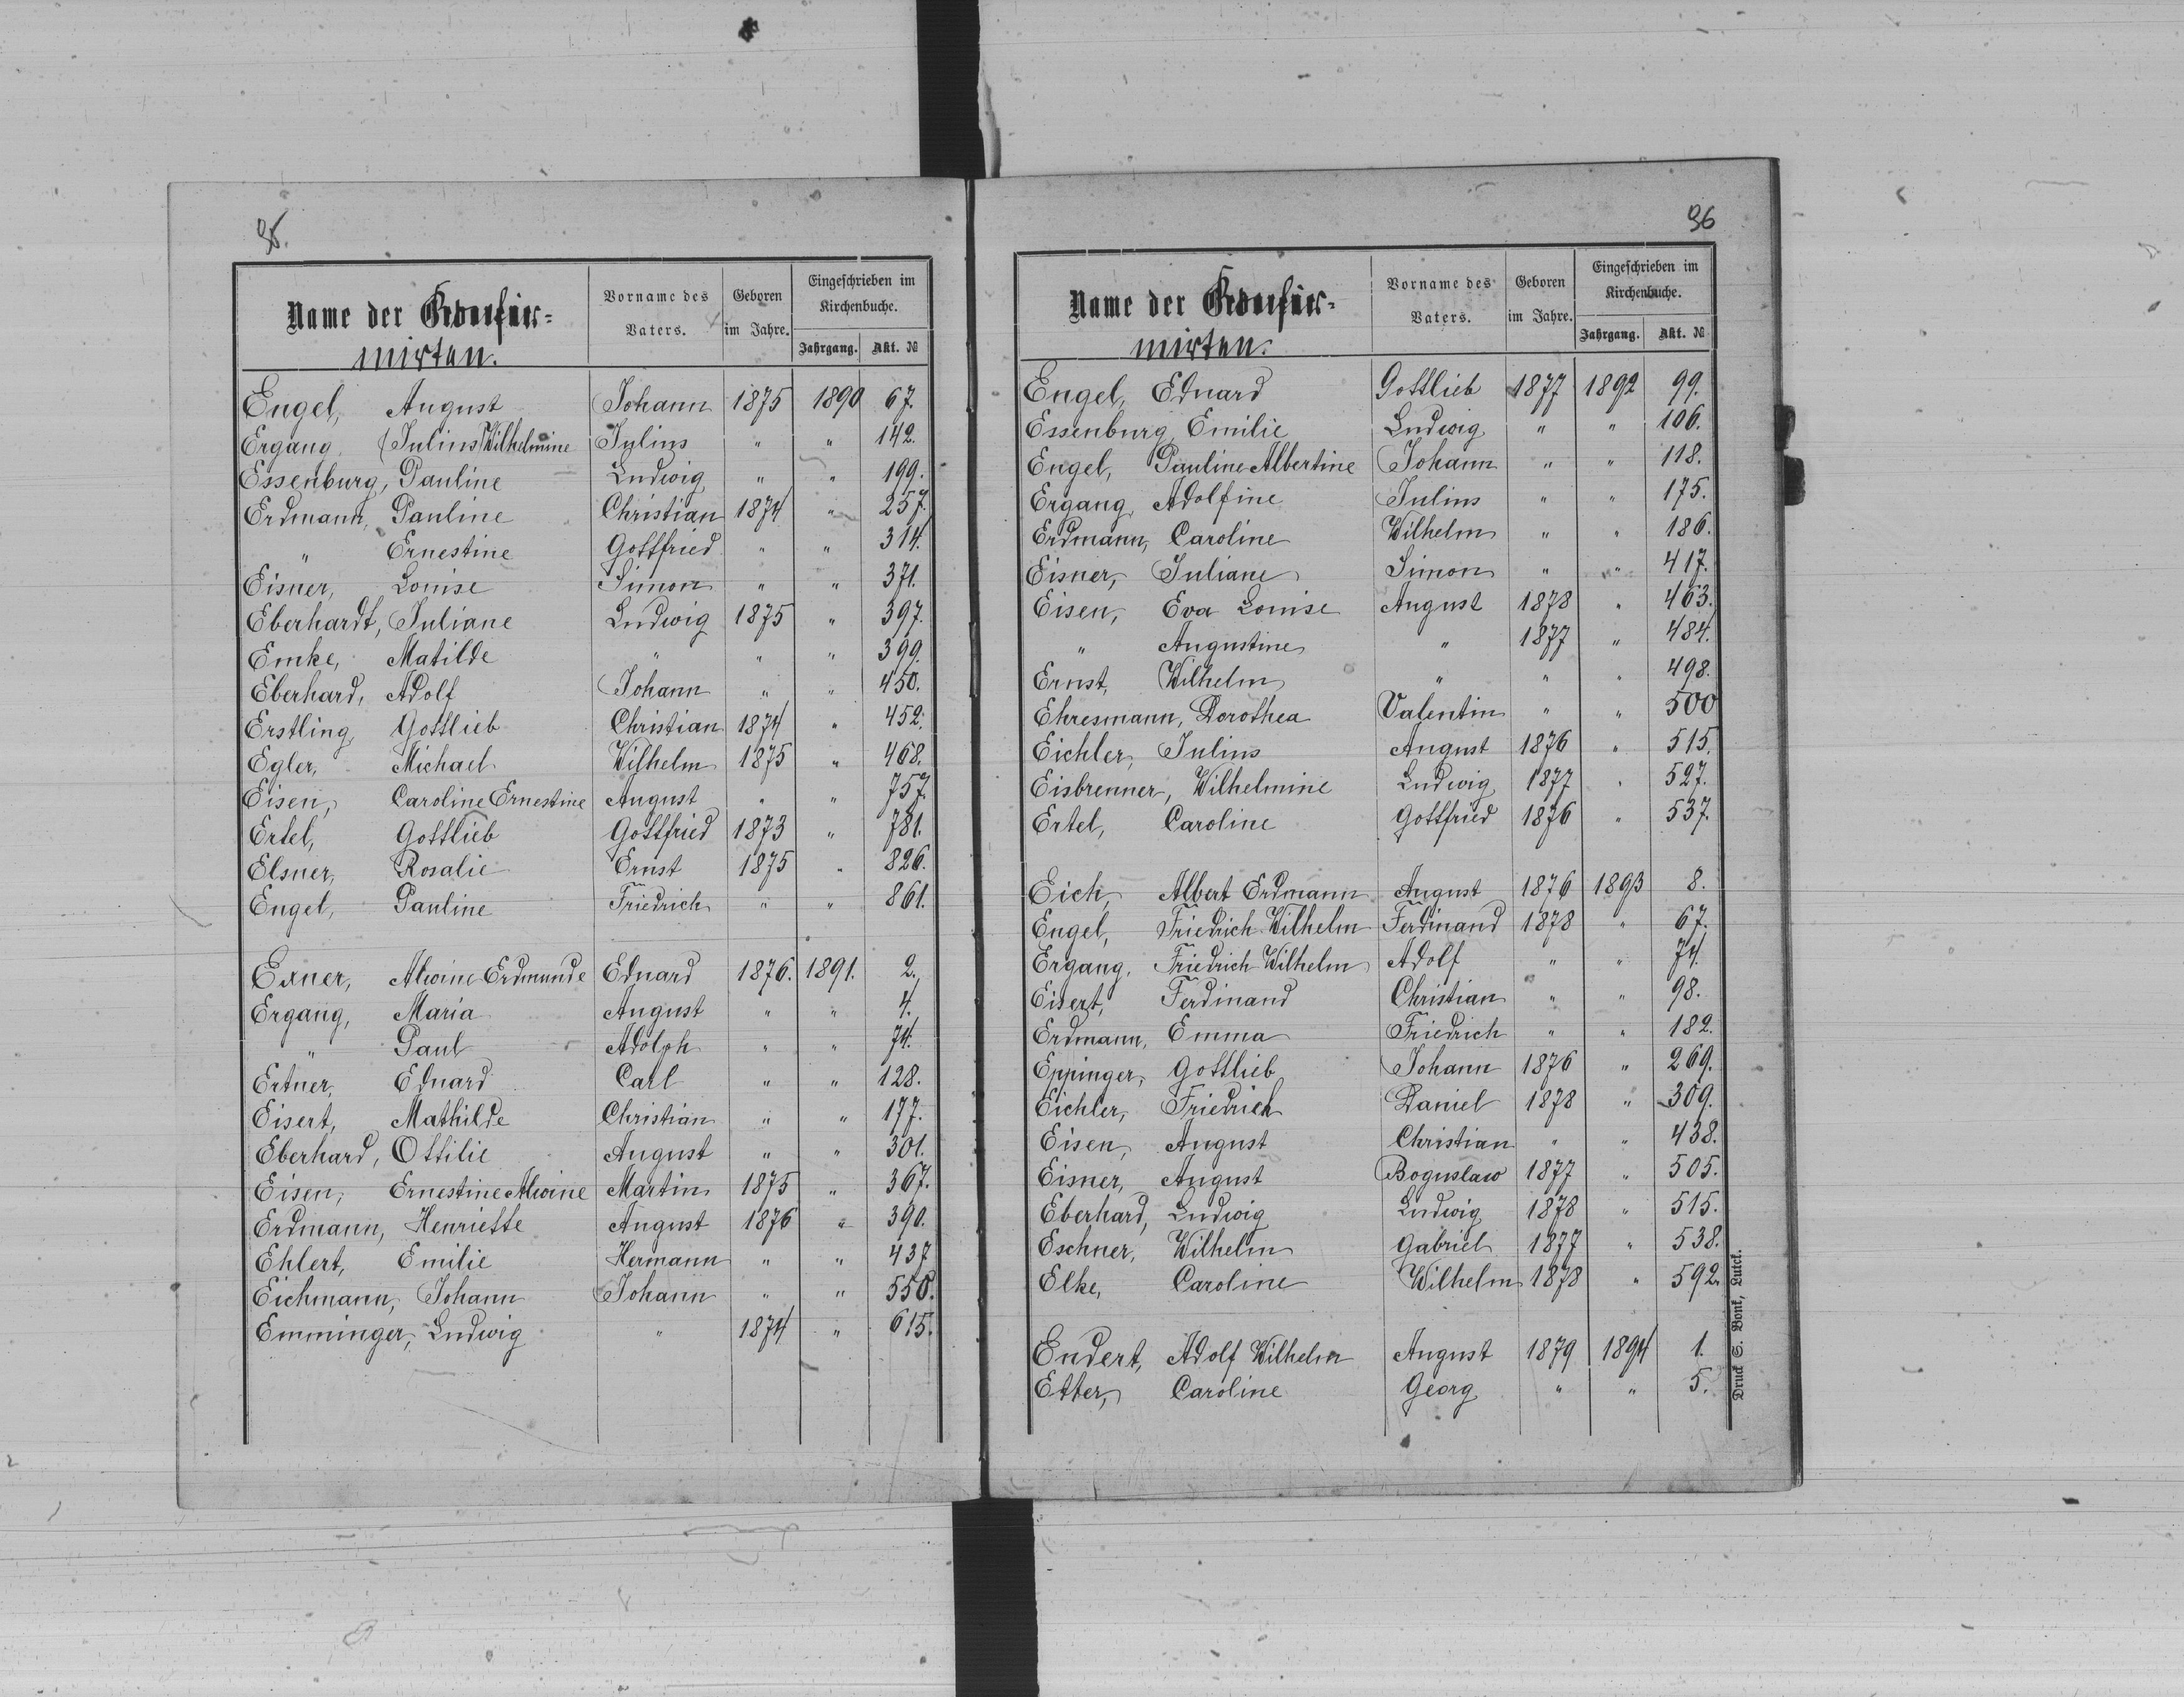 95.
Name der Konfir-
mirten.
Vorname des
Vaters.
Geboren
im Jahre.
Eingeschrieben im
Kirchenbuche.
Jahrgang. Akt. №
Engel, August Johann 1875 1890 67.
Ergang, (Julius) Wilhelmine Julius " " 142.
Essenburg, Pauline Ludwig " " 199.
Erdmann, Pauline Christian 1874 " 257.
" Ernestine Gottfried " " 314.
Eisner, Louise Simon " " 371.
Eberhardt, Juliane Ludwig 1875 " 397.
Emke, Matilde " " " 399.
Eberhard, Adolf Johann " " 450.
Erstling, Gottlieb Christian 1874 " 452.
Egler, Michael Wilhelm 1875 " 468.
Eisen, Caroline Ernestine August " " 757.
Ertel, Gottlieb Gottfried 1873 " 781.
Elsner, Rosalie Ernst 1875 " 826.
Engel, Pauline Friedrich " " 861.
Exner, Alwine Erdmunde Eduard 1876. 1891. 2.
Ergang, Maria August " " 4.
" Paul Adolph " " 74.
Ertner, Eduard Carl " " 128.
Eisert, Mathilde Christian " " 177.
Eberhard, Ottilie August " " 301.
Eisen, Ernestine Alwine Martin 1875 " 367.
Erdmann, Henriette August 1876 " 390.
Ehlert, Emilie Hermann " " 437
Eichmann, Johann Johann " " 550.
Emminger, Ludwig " 1874 " 615.
96
Name der Konfir-
mirten.
Vorname des
Vaters.
Geboren
im Jahre.
Eingeschrieben im
Kirchenbuche.
Jahrgang. Akt. №
Engel, Eduard Gottlieb 1877 1892 99.
Essenburg, Emilie Ludwig " " 106.
Engel, Pauline Albertine Johann " " 118.
Ergang, Adolfine Julius " " 175.
Erdmann, Caroline Wilhelm " " 186.
Eisner, Juliane Simon " " 417.
Eisen, Eva Louise August 1878 " 463.
" Augustine " 1877 " 484.
Ernst, Wilhelm " " " 498.
Ehresmann, Dorothea Valentin " " 500
Eichler, Julius August 1876 " 515.
Eisbrenner, Wilhelmine Ludwig 1877 " 527.
Ertel, Caroline Gottfried 1876 " 537.
Eich, Albert Erdmann August 1876 1893 8.
Engel, Friedrich Wilhelm Ferdinand 1878 " 67.
Ergang, Friedrich Wilhelm Adolf " " 74.
Eisert, Ferdinand Christian " " 98.
Erdmann, Emma Friedrich " " 182.
Eppinger, Gottlieb Johann 1876 " 269.
Eichler, Friedrich Daniel 1878 " 309.
Eisen, August Christian " " 438.
Eisner, August Boguslaw 1877 " 505.
Eberhard, Ludwig Ludwig 1878 " 515.
Eschner, Wilhelm Gabriel 1877 " 538.
Elke, Caroline Wilhelm 1878 " 592.
Endert, Adolf Wilhelm August 1879 1894 1.
Etter, Caroline Georg " " 5.
Druck S. Bonk, Lutck.